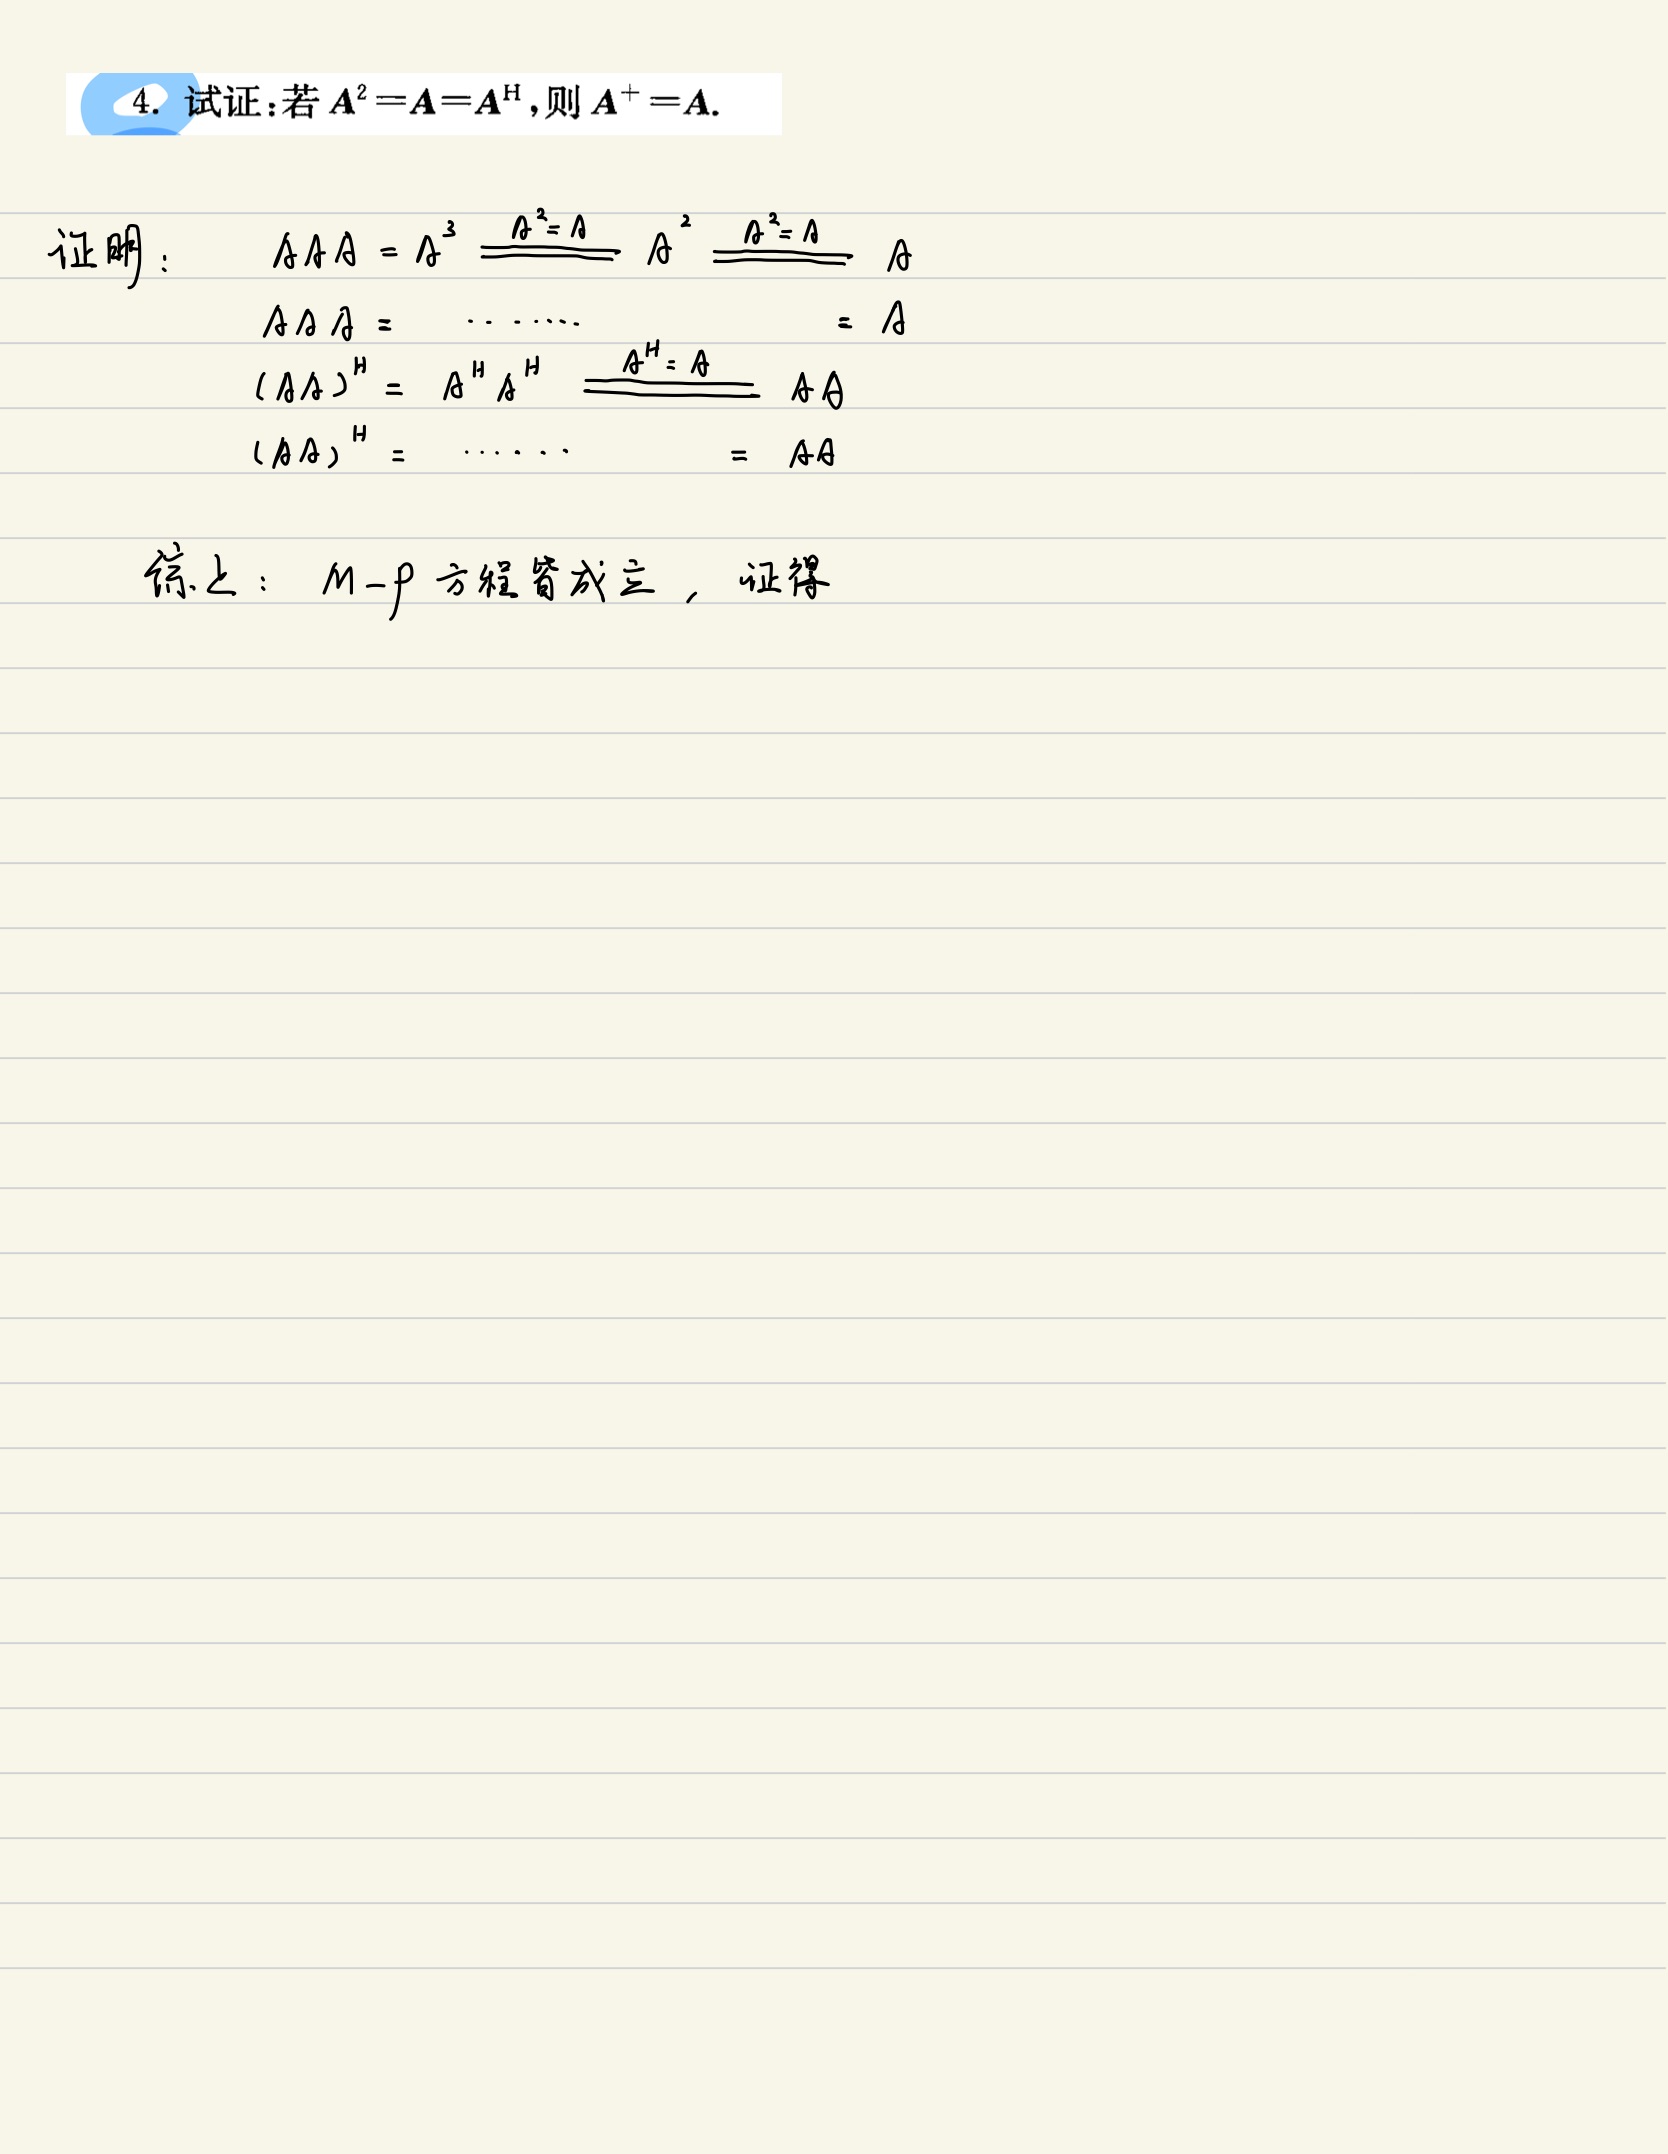 4. 试证:若 A²=A=Aᴴ,则 A⁺=A.
证明: AAA = A³ \xlongequal{A²=A} A² \xlongequal{A²=A} A
AAA = ······· = A
(AA)ᴴ = AᴴAᴴ \xlongequal{Aᴴ=A} AA
(AA)ᴴ = ······ = AA
综上: M-P 方程皆成立, 证得